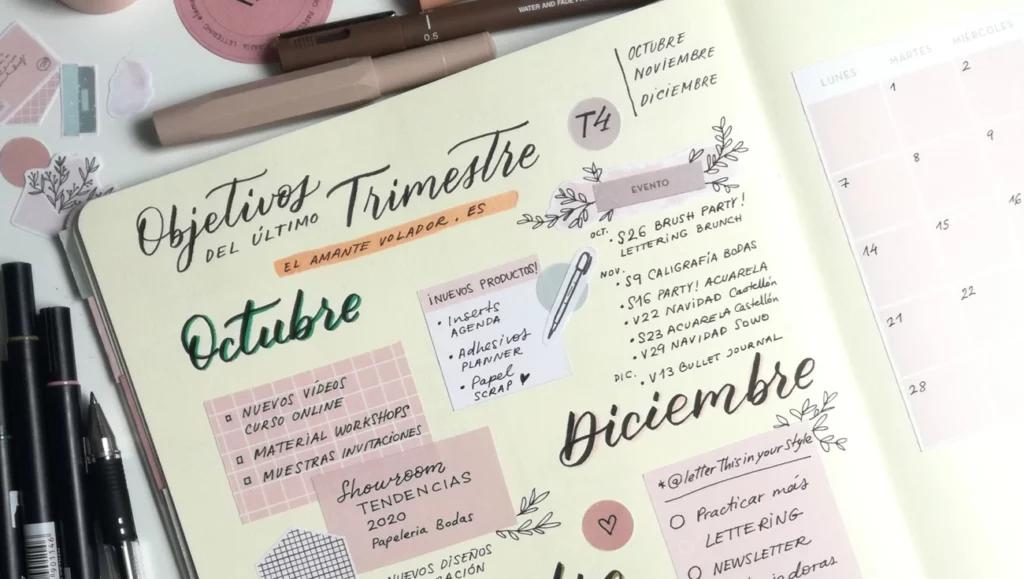 WATER AND FADE
0.5
LETTERING
OCTUBRE
NOVIEMBRE
DICIEMBRE
T4
Objetivos
DEL ÚLTIMO Trimestre
EL AMANTE VOLADOR.ES
EVENTO
OCT. • S26 BRUSH PARTY!
LETTERING BRUNCH
NOV. • S9 CALIGRAFÍA BODAS
• S16 PARTY! ACUARELA
• V22 NAVIDAD Castellón
• S23 ACUARELA Castellón
• V29 NAVIDAD SOWO
DIC. • V13 BULLET JOURNAL
Octubre
¡NUEVOS PRODUCTOS!
• Inserts
AGENDA
• Adhesivos
PLANNER
• Papel
SCRAP ♥
NUEVOS VÍDEOS
CURSO ONLINE
MATERIAL WORKSHOPS
MUESTRAS INVITACIONES
Showroom
TENDENCIAS
2020
Papelería Bodas
NUEVOS DISEÑOS
Diciembre
*@letterThisinyourStyle
Practicar más
LETTERING
NEWSLETTER
LUNES MARTES MIÉRCOLES
1 2
7 8 9
14 15 16
21 22
28